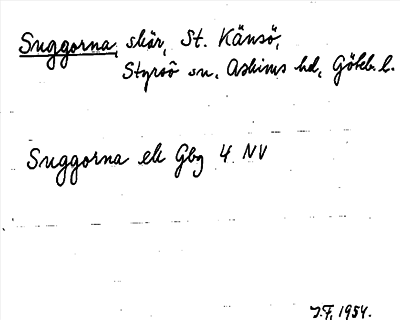 Suggorna, skär, St. Känsö,
Styrsö sn, Askims hd, Göteb. l.
Suggorna ek Gbg 4 NV
J.F. 1954.